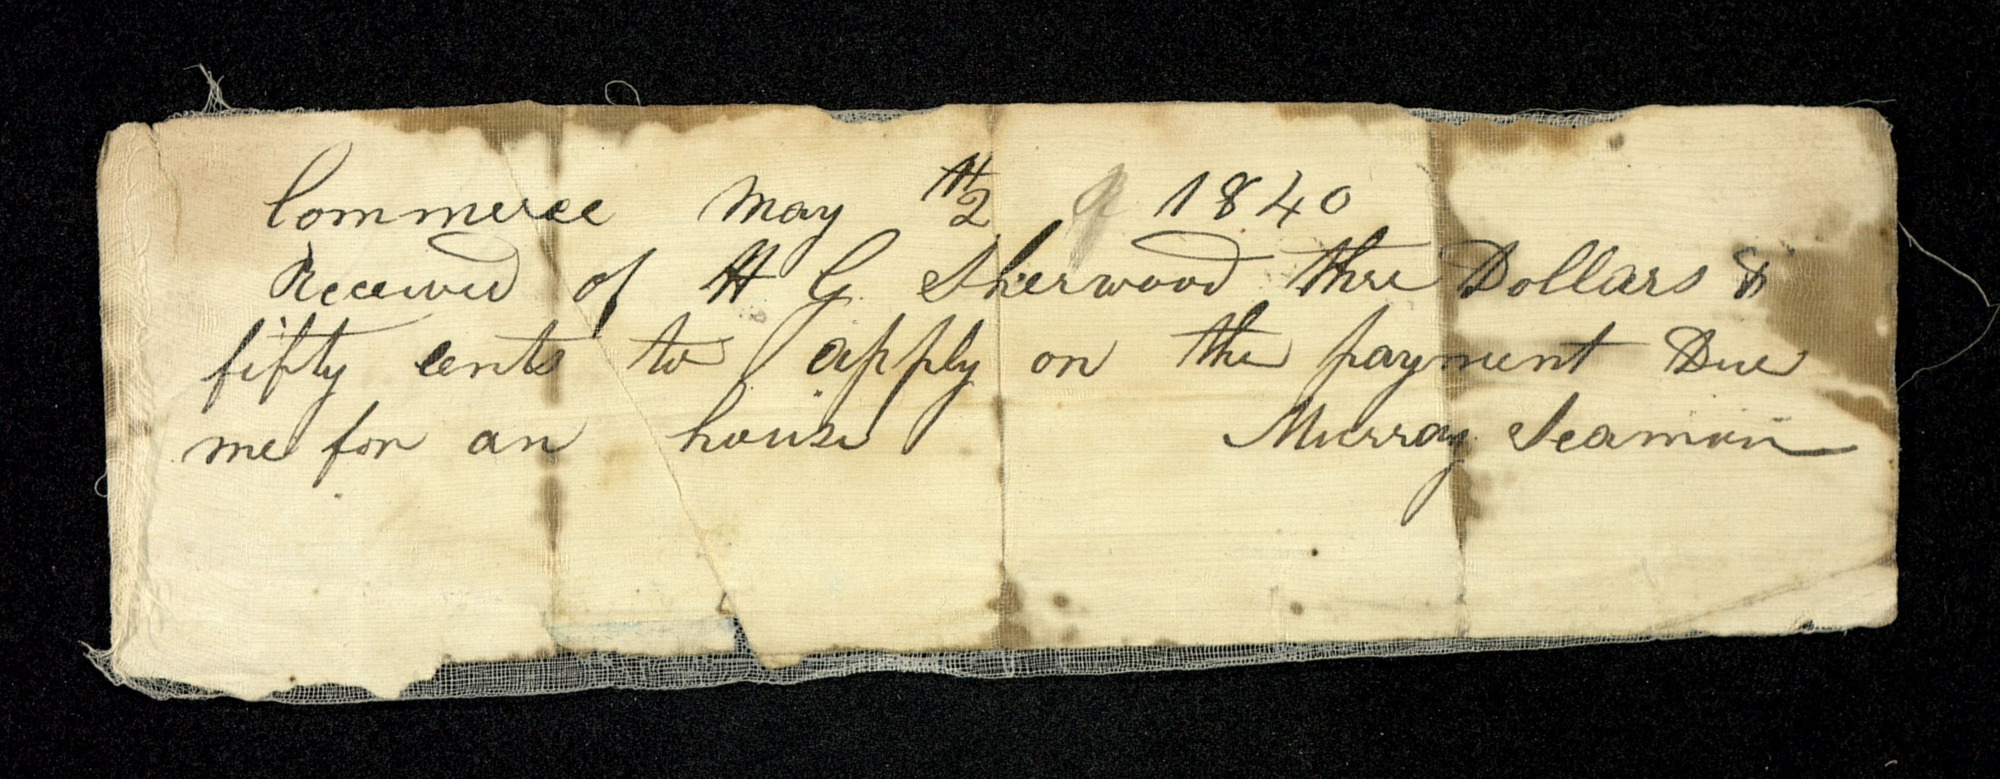 Commerce May th2 1840
Received of H G Sherwood thre Dollars &
fifty cents to apply on the payment Due
me for an house Murray Seaman